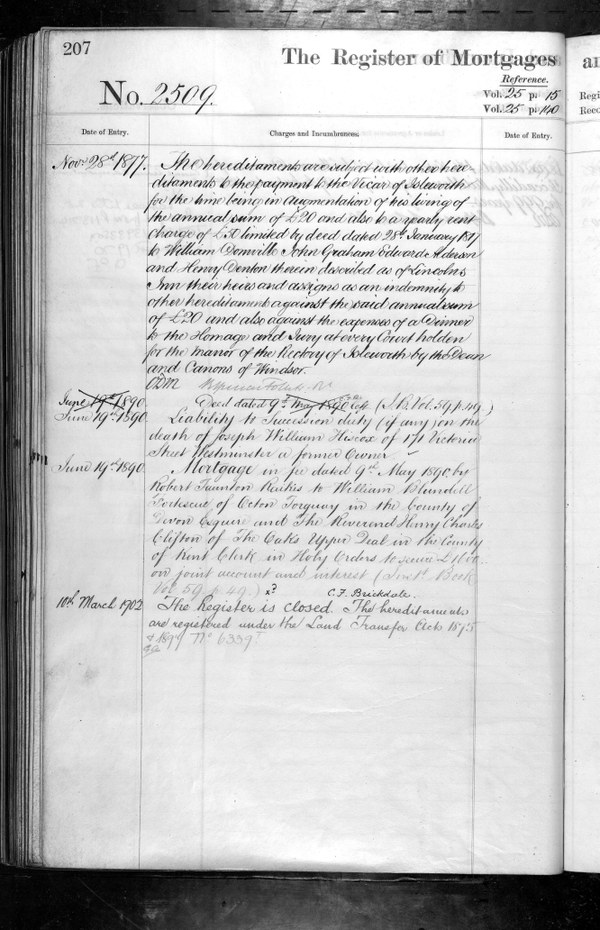 207
The Register of Mortgages
Reference.
No. 2509.
Vol. 25 p. 15
Vol. 25 p. 140
Date of Entry.
Charges and Incumbrances.
Date of Entry.
Novr. 28th 1877. The hereditaments are subject with other here-
ditaments to the payment to the Vicar of Isleworth
for the time being in augmentation of his living of
the annual sum of £20 and also to a yearly rent
charge of £50 limited by deed dated 28th January 1817
to William Domville John Graham Edward Alderson
and Henry Denton therein described as of Lincolns
Inn their heirs and assigns as an indemnity to
other hereditaments against the said annual sum
of £20 and also against the expenses of a Dinner
to the Homage and Jury at every Court holden
for the Manor of the Rectory of Isleworth by the Dean
and Canons of Windsor.
June 19th 1890. Deed dated 9th May 1890 (I. B. Vol. 59 p. 49.)
June 19th 1890. Liability to Succession duty (if any) on the
death of Joseph William Hiscox of 171 Victoria
Street Westminster a former Owner.
June 19th 1890. Mortgage in fee dated 9th May 1890 by
Robert Taunton Raikes to William Blundell
Fortescue of Octon Torquay in the County of
Devon Esquire and The Reverend Henry Charles
Clifton of The Oaks Upper Deal in the County
of Kent Clerk in Holy Orders to secure
on joint account and interest ( Book
Vol. 59 p. 49.) x? C. F. Brickdale.
10th March 1902 The Register is closed. The hereditaments
are registered under the Land Transfer Acts 1875
& 1897 No. 6339
an
Regi
Reco